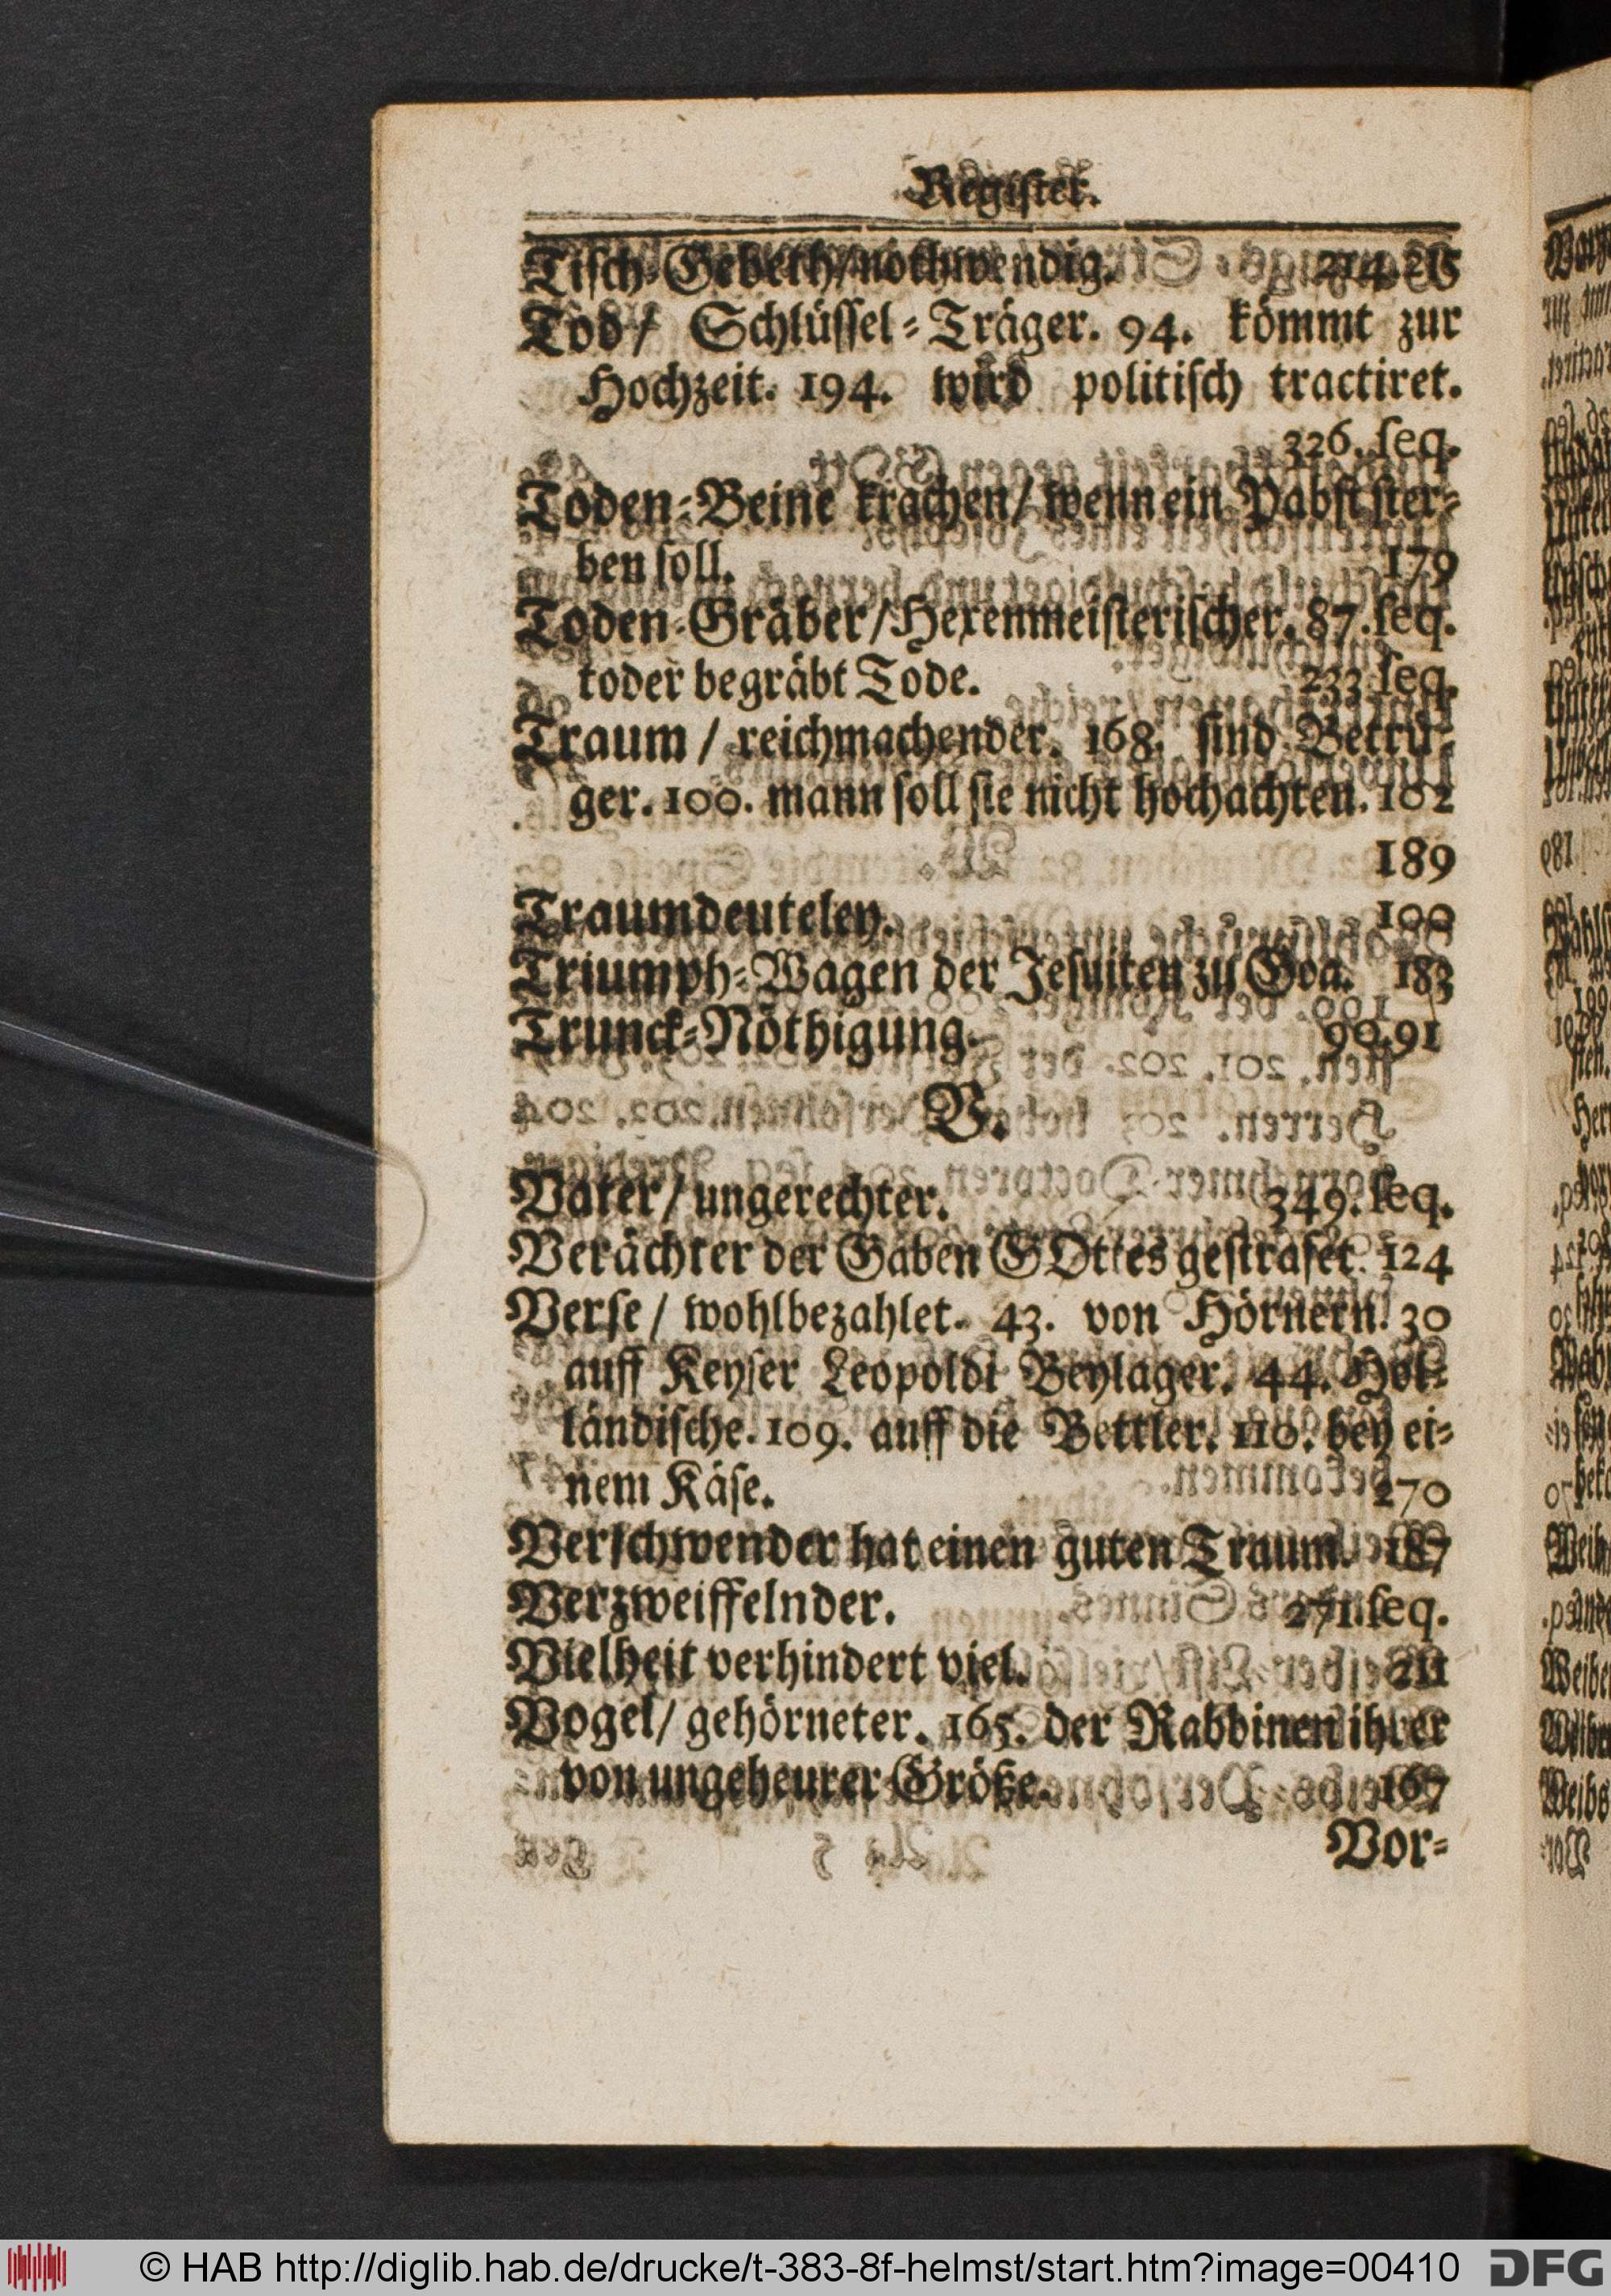 Register.
Tisch-Gebeth/nothwendig. 214. 215
Tod/ Schlüssel-Träger. 94. kömmt zur
Hochzeit. 194. wird politisch tractiret.
326. seq.
Toden-Beine krachen/ wenn ein Pabst ster-
ben soll. 179
Toden-Gräber/Hexenmeisterischer. 87. seq.
toder begräbt Tode. 233 seq.
Traum / reichmachender. 168. sind Betrü-
ger. 100. mann soll sie nicht hochachten. 102
189
Traumdeuteley. 100
Triumph-Wagen der Jesuiten zu Goa. 183
Trunck-Nöthigung. 90. 91
V.
Vater/ ungerechter. 349. seq.
Verächter der Gaben GOttes gestrafet. 124
Verse / wohlbezahlet. 43. von Hörnern. 30
auff Keyser Leopoldi Beylager. 44. Hol-
ländische. 109. auff die Bettler. 110. bey ei-
nem Käse. 270
Verschwender hat einen guten Traum. 187
Verzweiffelnder. 271. seq.
Vielheit verhindert viel. 211
Vogel/ gehörneter. 165. der Rabbinen ihrer
von ungeheurer Größe. 167
Vor-
© HAB http://diglib.hab.de/drucke/t-383-8f-helmst/start.htm?image=00410 DFG